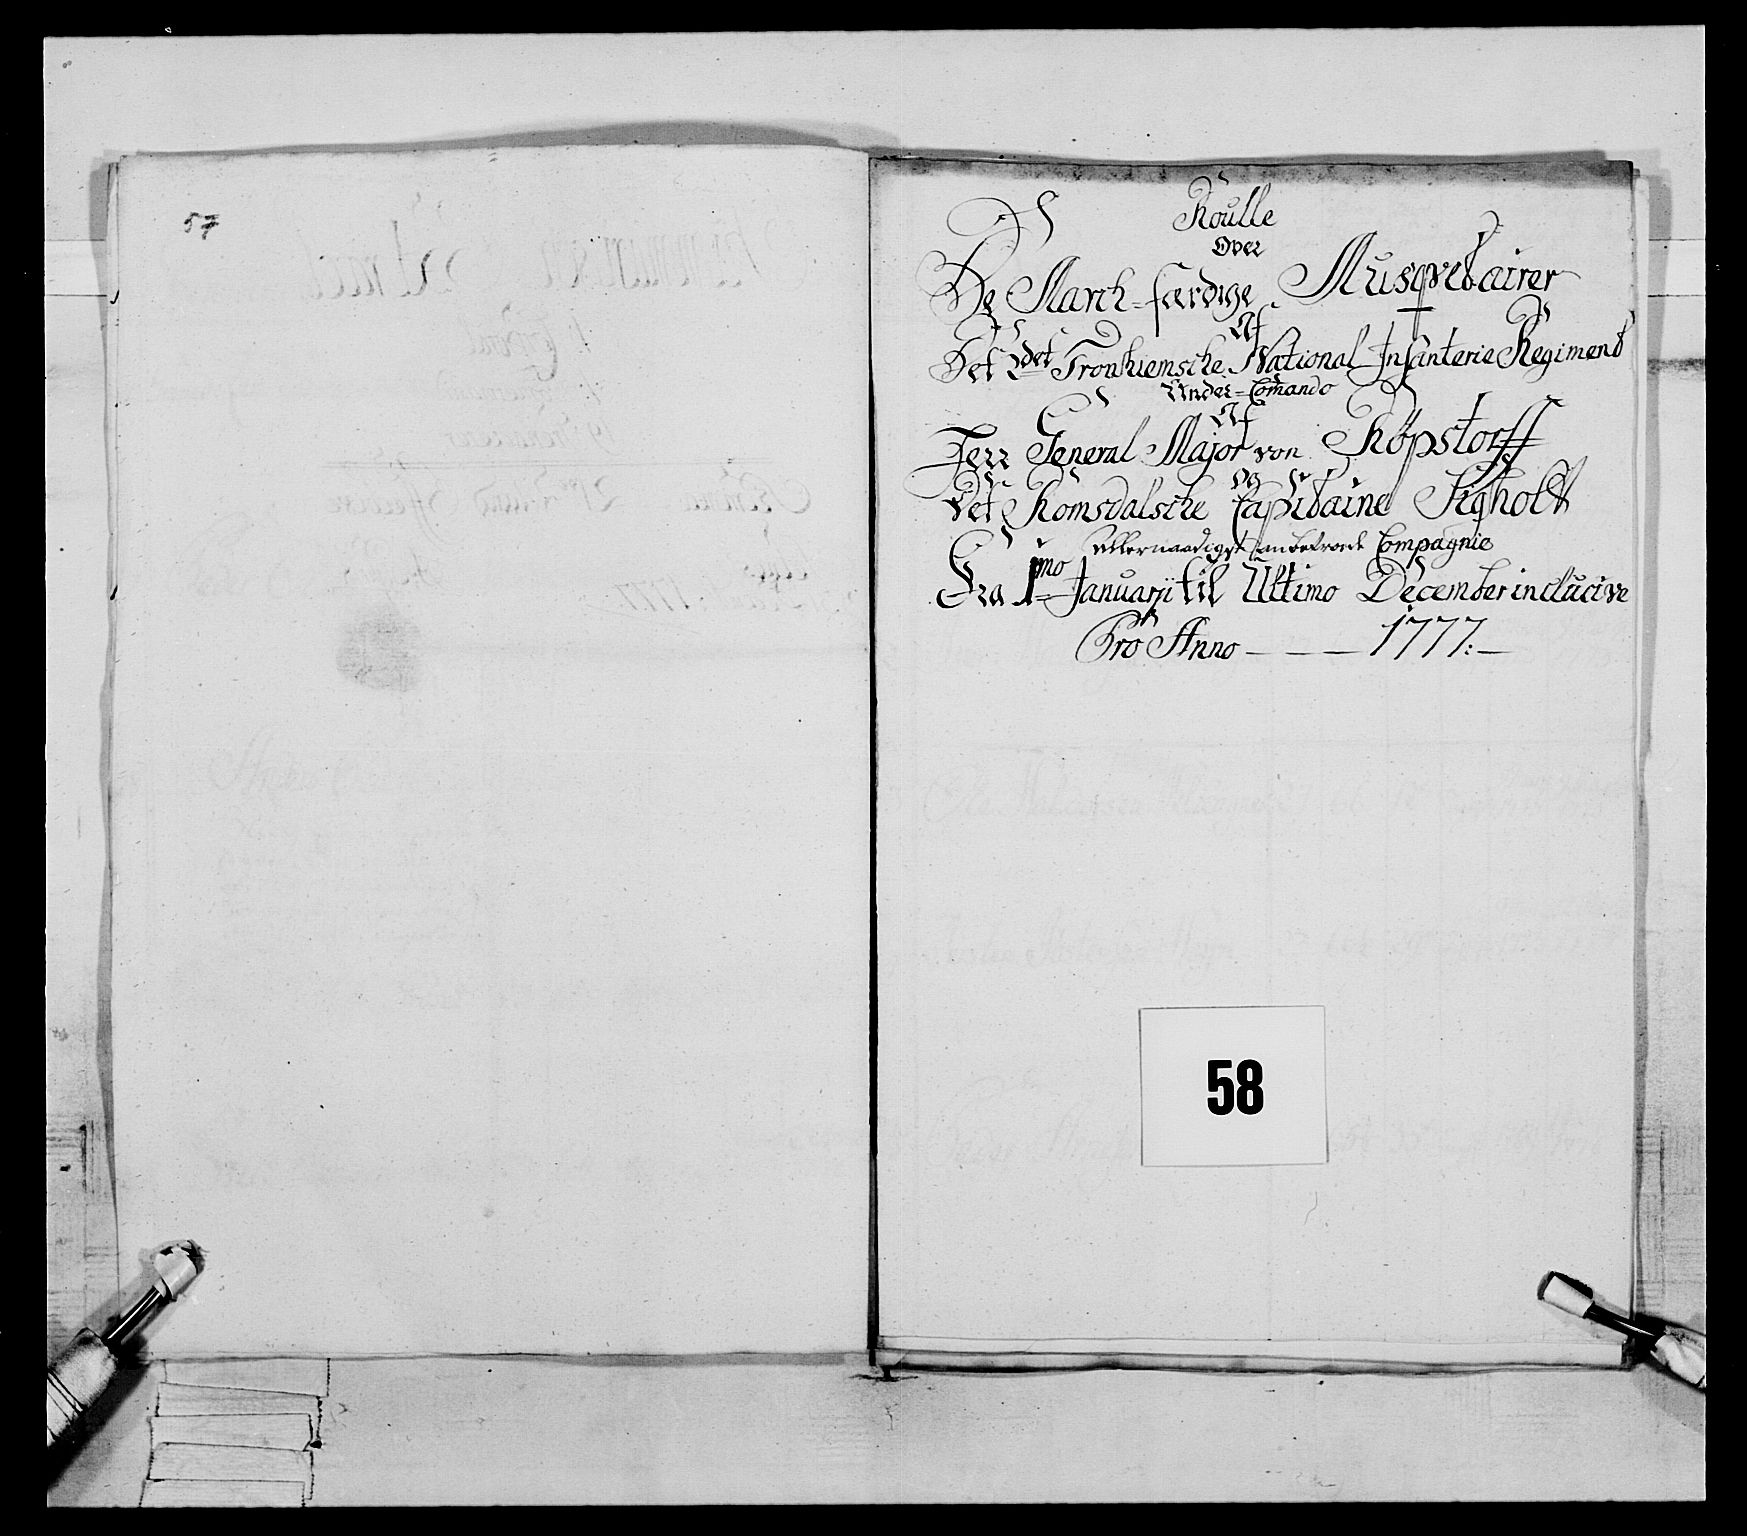 57
Roulle
Over
De March-færdige Musqvetairer
Af
Det 2det Tronhiemske National Infanterie Regiment
Under-Comando
Af
Herr General Major von Röpstorff
og
Det Romsdalske Capitaine Sigholt
allernaadigst anbetroede Compagnie
Fra 1mo Januarii til Ultimo December inclucive
Pro Anno - - - 1777:-
58